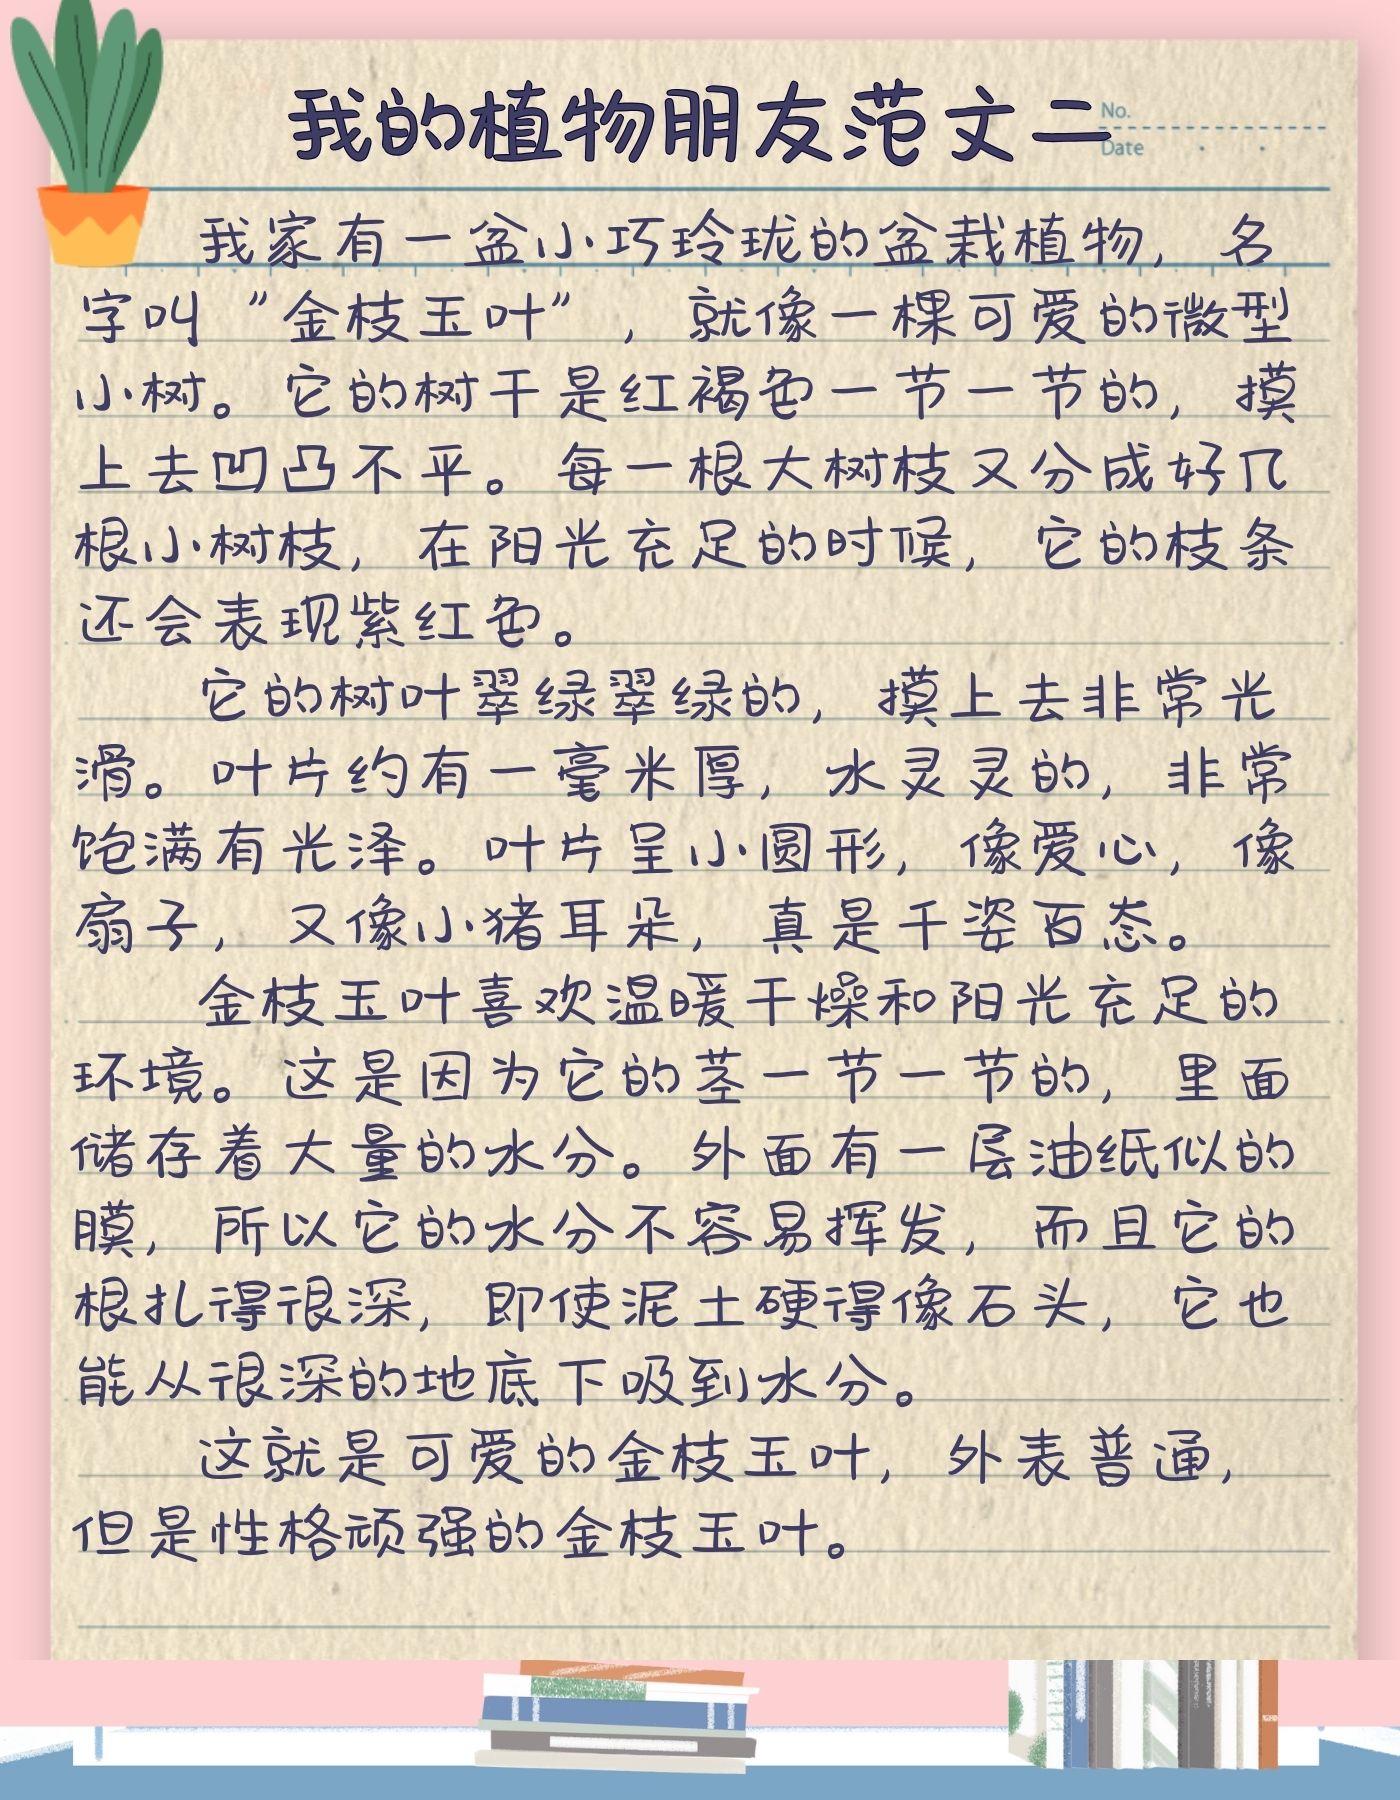 我的植物朋友范文二
No.
Date
我家有一盆小巧玲珑的盆栽植物，名
字叫“金枝玉叶”，就像一棵可爱的微型
小树。它的树干是红褐色一节一节的，摸
上去凹凸不平。每一根大树枝又分成好几
根小树枝，在阳光充足的时候，它的枝条
还会表现紫红色。
它的树叶翠绿翠绿的，摸上去非常光
滑。叶片约有一毫米厚，水灵灵的，非常
饱满有光泽。叶片呈小圆形，像爱心，像
扇子，又像小猪耳朵，真是千姿百态。
金枝玉叶喜欢温暖干燥和阳光充足的
环境。这是因为它的茎一节一节的，里面
储存着大量的水分。外面有一层油纸似的
膜，所以它的水分不容易挥发，而且它的
根扎得很深，即使泥土硬得像石头，它也
能从很深的地底下吸到水分。
这就是可爱的金枝玉叶，外表普通，
但是性格顽强的金枝玉叶。